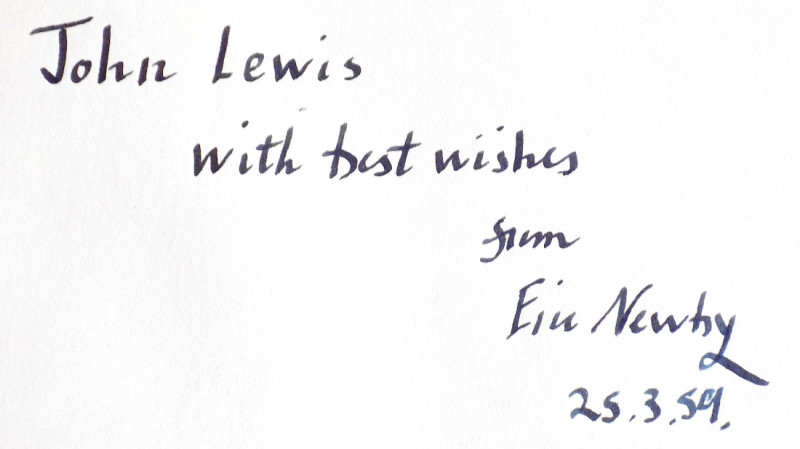 John Lewis
with best wishes
from
Eric Newby
25.3.59.